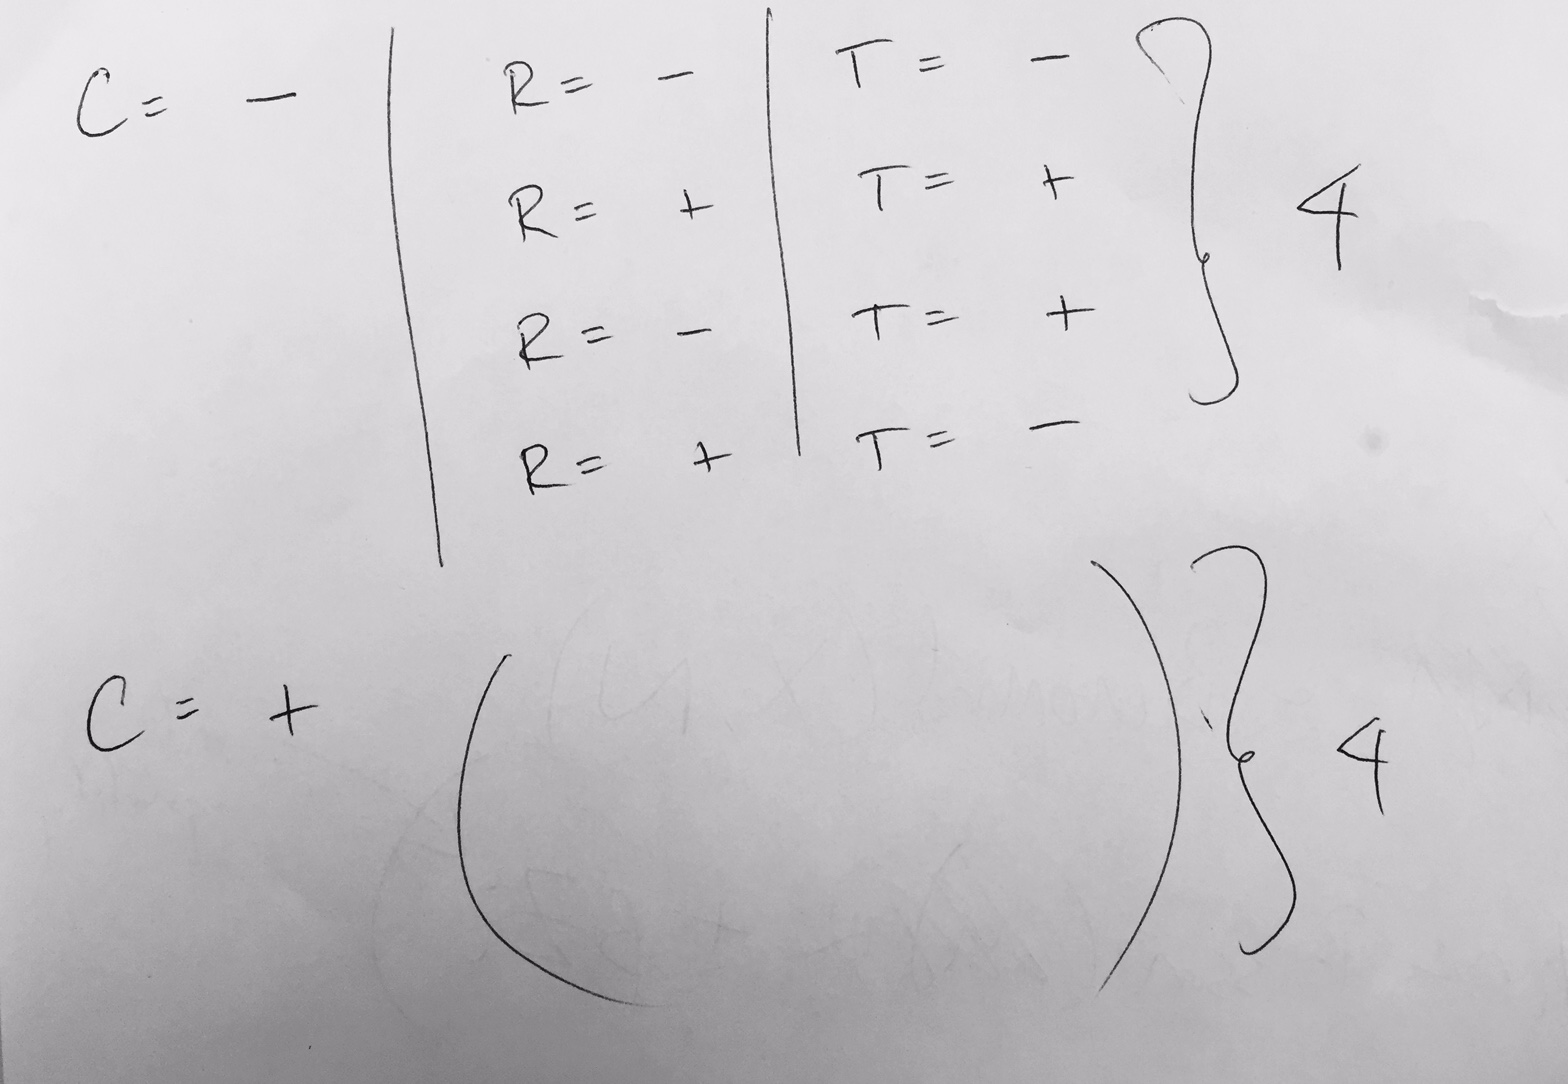 C = - | R = - | T = - } 4
R = + | T = +
R = - | T = +
R = + | T = -
C = + ( ) } 4